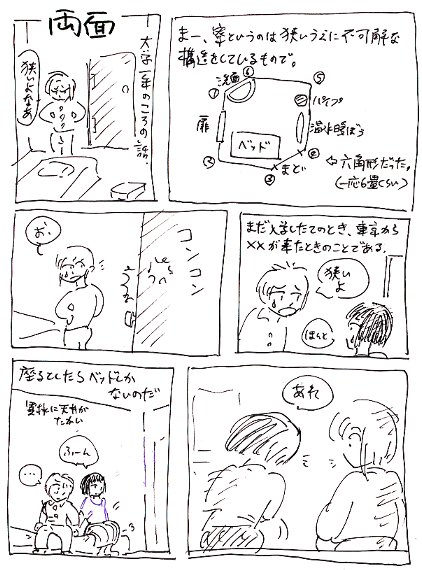 両面
大学一年のころの
話。
狭いよなあ
まー、寮というのは狭いうえに不可解な
構造をしているもので。
洗面
パイプ
扉
温水暖ぼう
ベッド
まど
①
②
③
④
⑤
⑥
←六角形だった。
(一応6畳くらい)
コンコン
お、
まだ入学したてのとき、東京から
××が来たときのことである。
狭い
よ
ほんと
座るとしたらベッドしか
ないのだ
ふーん
…
あれ